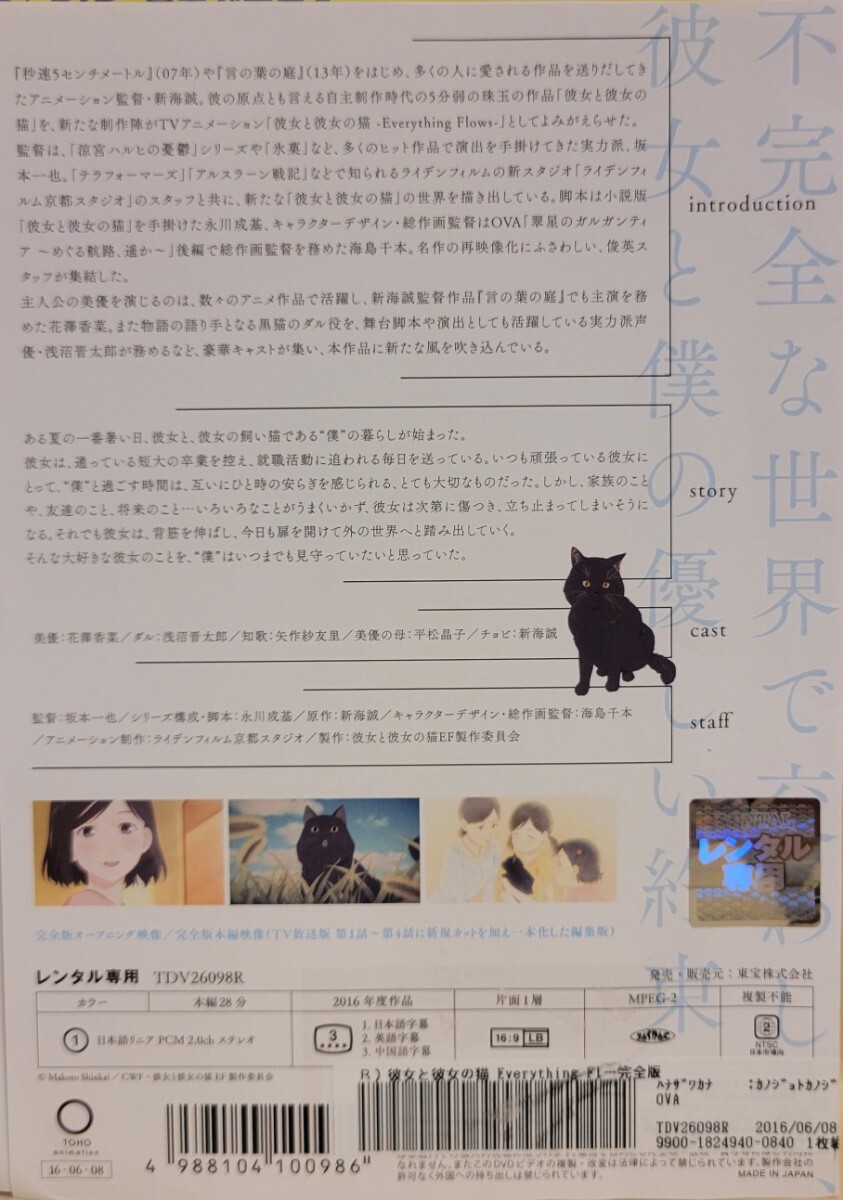 不完全な世界で交わし
彼女と僕の優しい約束
introduction
『秒速5センチメートル』(07年)や『言の葉の庭』(13年)をはじめ、多くの人に愛される作品を送りだしてき
たアニメーション監督・新海誠。彼の原点とも言える自主制作時代の5分弱の珠玉の作品「彼女と彼女の
猫」を、新たな制作陣がTVアニメーション「彼女と彼女の猫 -Everything Flows-」としてよみがえらせた。
監督は、「涼宮ハルヒの憂鬱」シリーズや「氷菓」など、多くのヒット作品で演出を手掛けてきた実力派、坂
本一也。「テラフォーマーズ」「アルスラーン戦記」などで知られるライデンフィルムの新スタジオ「ライデンフィ
ルム京都スタジオ」のスタッフと共に、新たな「彼女と彼女の猫」の世界を描き出している。脚本は小説版
「彼女と彼女の猫」を手掛けた永川成基、キャラクターデザイン・総作画監督はOVA「翠星のガルガンティ
ア ～めぐる航路、遥か～」後編で総作画監督を務めた海島千本。名作の再映像化にふさわしい、俊英ス
タッフが集結した。
主人公の美優を演じるのは、数々のアニメ作品で活躍し、新海誠監督作品『言の葉の庭』でも主演を務
めた花澤香菜。また物語の語り手となる黒猫のダル役を、舞台脚本や演出としても活躍している実力派声
優・浅沼晋太郎が務めるなど、豪華キャストが集い、本作品に新たな風を吹き込んでいる。
story
ある夏の一番暑い日、彼女と、彼女の飼い猫である“僕”の暮らしが始まった。
彼女は、通っている短大の卒業を控え、就職活動に追われる毎日を送っている。いつも頑張っている彼女に
とって、“僕”と過ごす時間は、互いにひと時の安らぎを感じられる、とても大切なものだった。しかし、家族のこと
や、友達のこと、将来のこと…いろいろなことがうまくいかず、彼女は次第に傷つき、立ち止まってしまいそうに
なる。それでも彼女は、背筋を伸ばし、今日も扉を開けて外の世界へと踏み出していく。
そんな大好きな彼女のことを、“僕”はいつまでも見守っていたいと思っていた。
cast
美優：花澤香菜／ダル：浅沼晋太郎／知歌：矢作紗友里／美優の母：平松晶子／チョビ：新海誠
staff
監督：坂本一也／シリーズ構成・脚本：永川成基／原作：新海誠／キャラクターデザイン・総作画監督：海島千本
／アニメーション制作：ライデンフィルム京都スタジオ／製作：彼女と彼女の猫EF製作委員会
RENTAL
レンタル
専用
完全版オープニング映像／完全版本編映像（TV放送版 第1話～第4話に新規カットを加え一本化した編集版）
レンタル専用 TDV26098R
発売・販売元：東宝株式会社
カラー 本編28分 2016年度作品 片面1層 MPEG-2 複製不能
① 日本語リニア PCM 2.0ch ステレオ
3
1. 日本語字幕
2. 英語字幕
3. 中国語字幕
16:9 LB
2
NTSC
日本市場向
© Makoto Shinkai / CWF・彼女と彼女の猫 EF 製作委員会
R) 彼女と彼女の猫 Everything Fl…完全版
ﾊﾅｻﾞﾜｶﾅ :ｶﾉｼﾞｮﾄｶﾉｼﾞ
OVA
TDV26098R 2016/06/08
9900-1824940-0840 1枚
TOHO
animation
16・06・08
4 988104 100986
なれません。またこのDVDビデオの複製・改変は法律によって禁じられています。製作会社の
許可なく外国への持ち出しは禁じられています。
MADE IN JAPAN